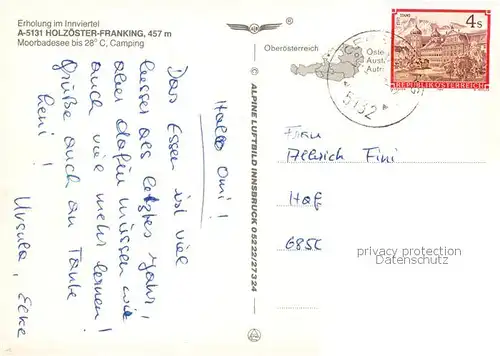 Erholung im Innviertel
A-5131 HOLZÖSTER-FRANKING, 457 m
Moorbadesee bis 28° C, Camping
Hallo Omi!
Das Essen ist viel
besser als letztes Jahr!
aber dafür müssen wir
auch viel mehr lernen!
Grüße auch an Tante
Leni!
Ursula, Elke
© ALPINE LUFTBILD INNSBRUCK 05222/27324
Oberösterreich
5132
STAMS
4 S
REPUBLIK ÖSTERREICH
Frau
Fini
6850
privacy protection
Datenschutz